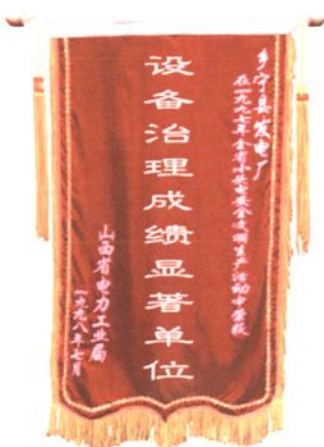 乡宁县发电厂
在一九九七年全省小火电安全文明生产活动中荣获
设备治理成绩显著单位
山西省电力工业局
一九九八年七月